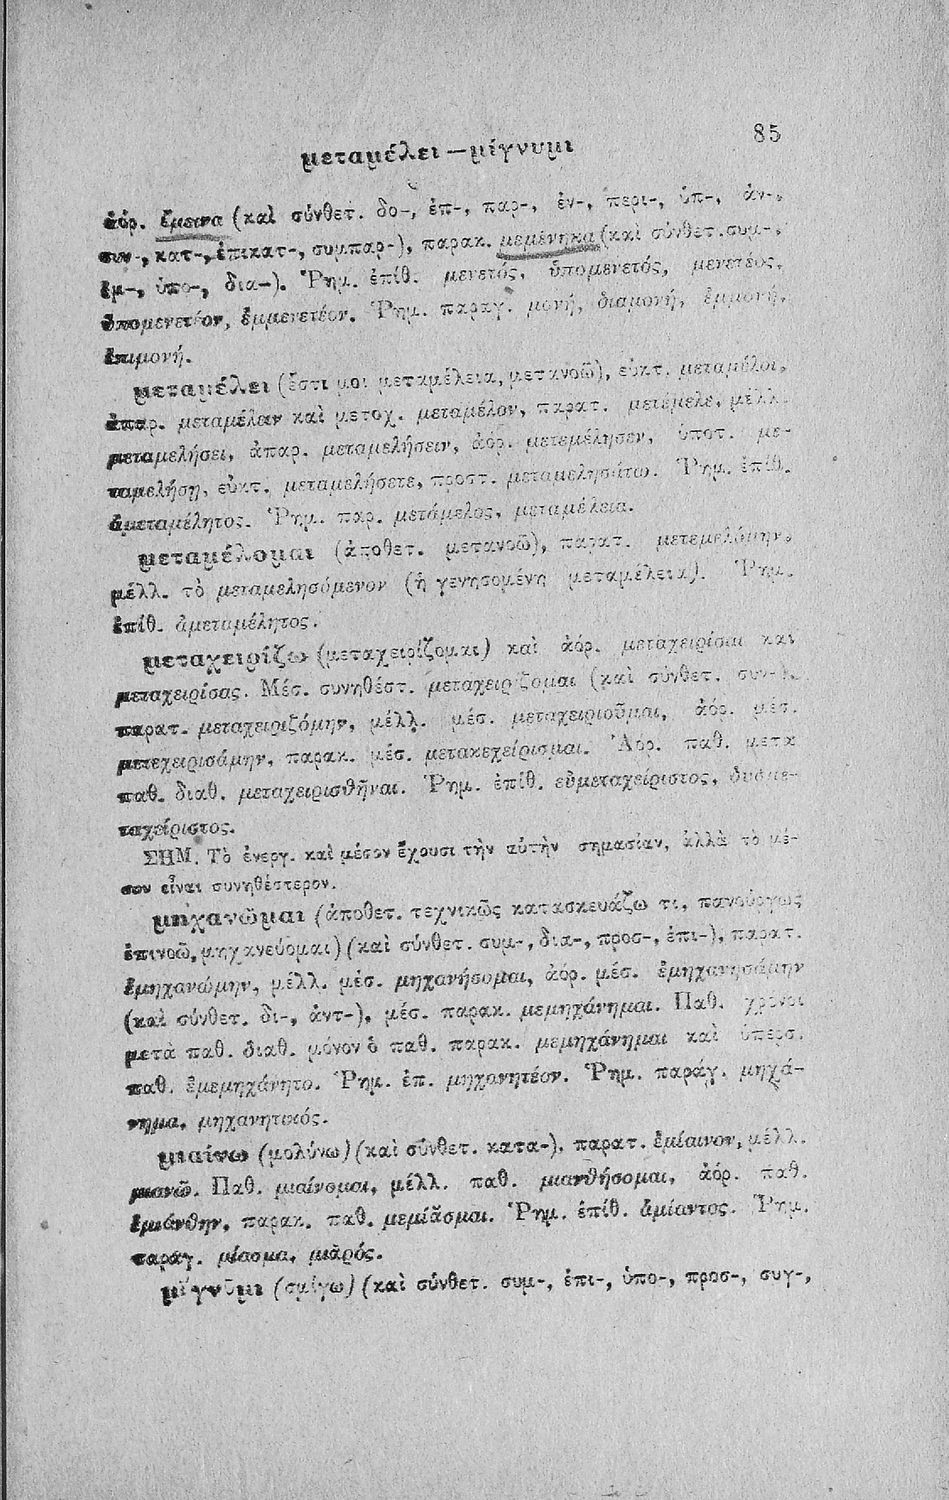 μεταμέλει — μίγνυμι
85
ἀόρ. ἔμεινα (καὶ σύνθετ. δο-, ἐπ-, παρ-, ἐν-, περι-, ὑπ-, ἀν-,
συν-, κατ-, ἐπικατ-, συμπαρ-), παρακ. μεμένηκα (καὶ σύνθετ. συμ-,
ἐμ-, ὑπο-, δια-). Ῥημ. ἐπίθ. μενετός, ὑπομενετός, μενετέος,
ὑπομενετέον, ἐμμενετέον. Ῥημ. παραγ. μονή, διαμονή, ἐμμονή,
ἐπιμονή.
μεταμέλει (ἔστι μοι μεταμέλεια, μετανοῶ), εὐκτ. μεταμέλοι,
ἀπαρ. μεταμέλειν καὶ μετοχ. μεταμέλον, παρατ. μετέμελε, μέλλ.
μεταμελήσει, ἀπαρ. μεταμελήσειν, ἀόρ. μετεμέλησεν, ὑποτ. με-
ταμελήσῃ, εὐκτ. μεταμελήσετε, προστ. μεταμελησάτω. Ῥημ. ἐπίθ.
ἀμεταμέλητος. Ῥημ. παρ. μετάμελος, μεταμέλεια.
μεταμέλομαι (ἀποθετ. μετανοῶ), παρατ. μετεμελόμην,
μέλλ. τὸ μεταμελησόμενον (ἡ γενησομένη μεταμέλεια). Ῥημ.
ἐπίθ. ἀμεταμέλητος.
μεταχειρίζω (μεταχειρίζομαι) καὶ ἀόρ. μεταχειρίσαι καὶ
μεταχειρίσας. Μέσ. συνηθέστ. μεταχειρίζομαι (καὶ σύνθετ. συν-),
παρατ. μεταχειριζόμην, μέλλ. μέσ. μεταχειριοῦμαι, ἀόρ. μέσ.
μετεχειρισάμην, παρακ. μέσ. μετακεχείρισμαι. Ἀόρ. παθ. μετὰ
παθ. διαθ. μεταχειρισθῆναι. Ῥημ. ἐπίθ. εὐμεταχείριστος, δυσμε-
ταχείριστος.
ΣΗΜ. Τὸ ἐνεργ. καὶ μέσον ἔχουσι τὴν αὐτὴν σημασίαν, ἀλλὰ τὸ μέ-
σον εἶναι συνηθέστερον.
μηχανῶμαι (ἀποθετ. τεχνικῶς κατασκευάζω τι, πανούργως
ἐπινοῶ, μηχανεύομαι) (καὶ σύνθετ. συμ-, δια-, προσ-, ἐπι-), παρατ.
ἐμηχανώμην, μέλλ. μέσ. μηχανήσομαι, ἀόρ. μέσ. ἐμηχανησάμην
(καὶ σύνθετ. δι-, ἀντ-), μέσ. παρακ. μεμηχάνημαι. Παθ. χρόνοι
μετὰ παθ. διαθ. μόνον ὁ παθ. παρακ. μεμηχάνημαι καὶ ὑπερσ.
παθ. ἐμεμηχάνητο. Ῥημ. ἐπ. μηχανητέον. Ῥημ. παράγ. μηχά-
νημα, μηχανητικός.
μιαίνω (μολύνω) (καὶ σύνθετ. κατα-), παρατ. ἐμίαινον, μέλλ.
μιανῶ. Παθ. μιαίνομαι, μέλλ. παθ. μιανθήσομαι, ἀόρ. παθ.
ἐμιάνθην, παρακ. παθ. μεμίασμαι. Ῥημ. ἐπίθ. ἀμίαντος. Ῥημ.
παραγ. μίασμα, μιαρός.
μίγνυμι (σμίγω) (καὶ σύνθετ. συμ-, ἐπι-, ὑπο-, προσ-, συγ-,